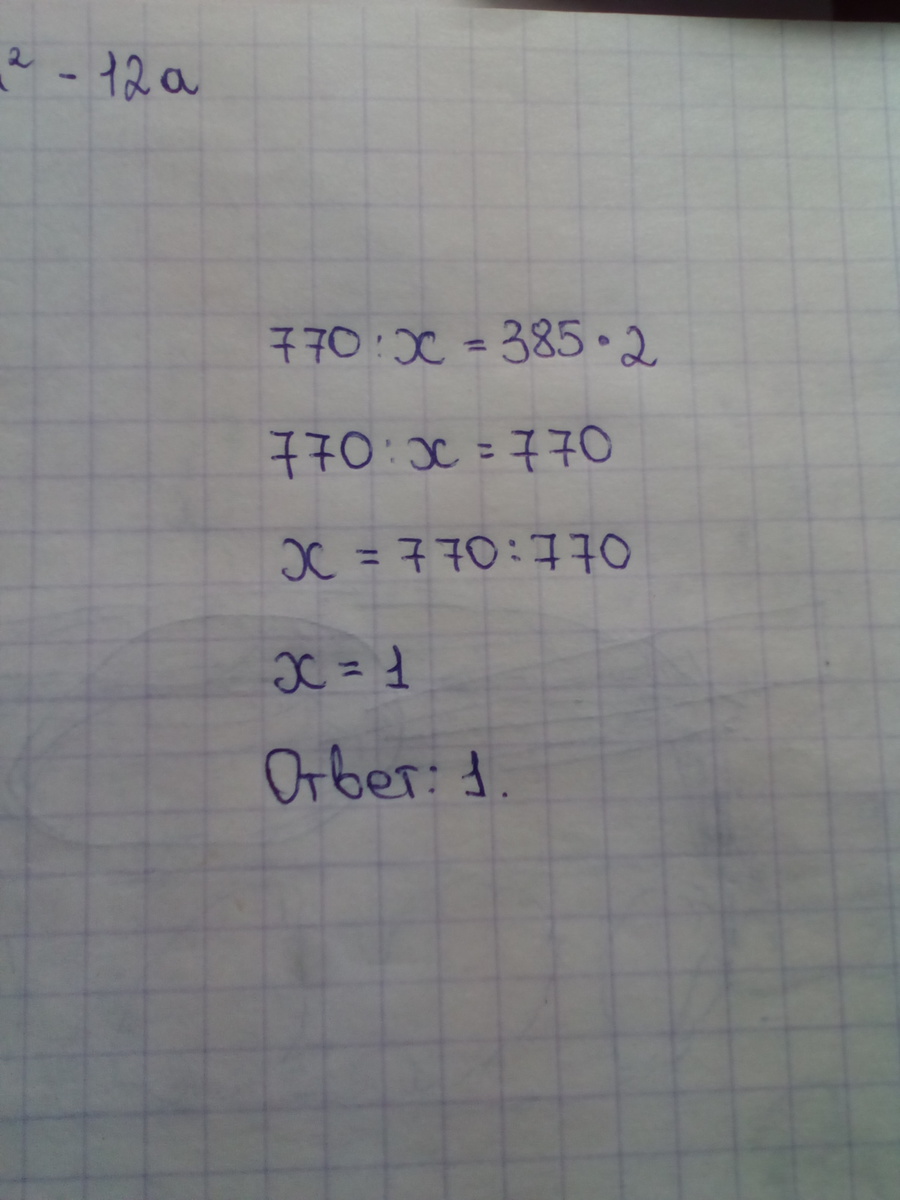 ² - 12a
770 : x = 385 · 2
770 : x = 770
x = 770 : 770
x = 1
Ответ: 1.